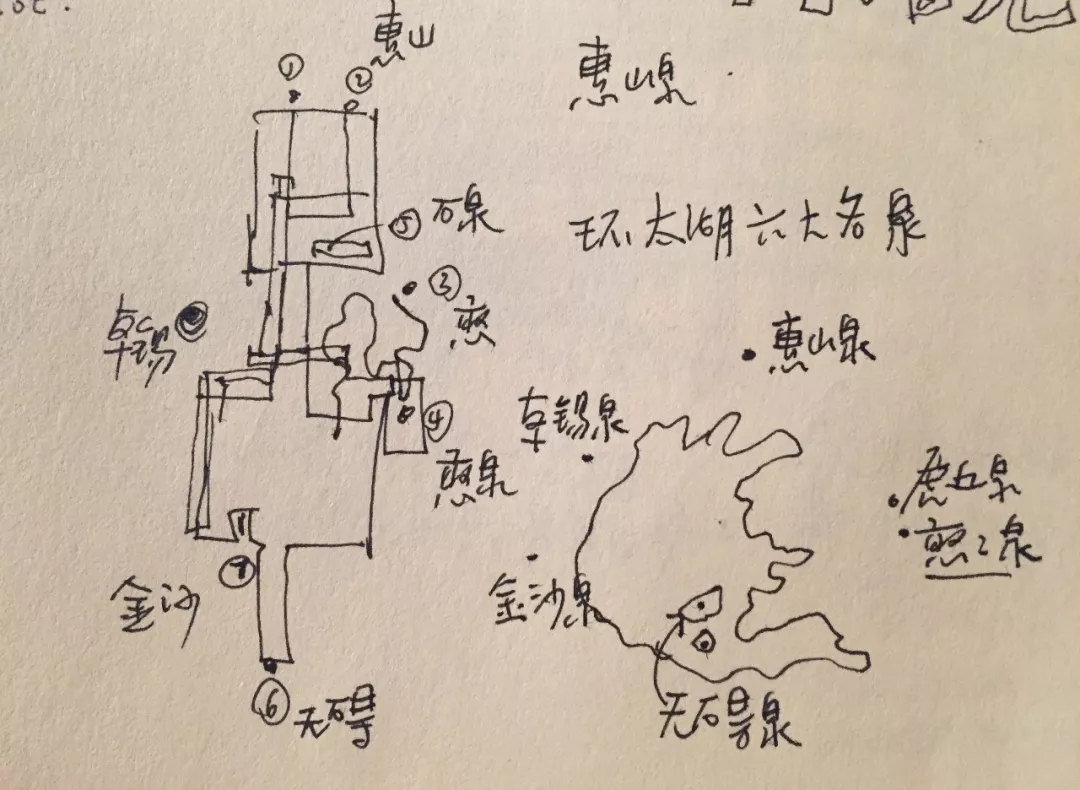 惠山
①
②
惠山泉
⑤
石泉
环太湖六大名泉
③
憨
卓锡
惠山泉
卓锡泉
④
憨泉
虎丘泉
憨憨泉
⑦
金沙
金沙泉
⑥
无碍
无碍泉